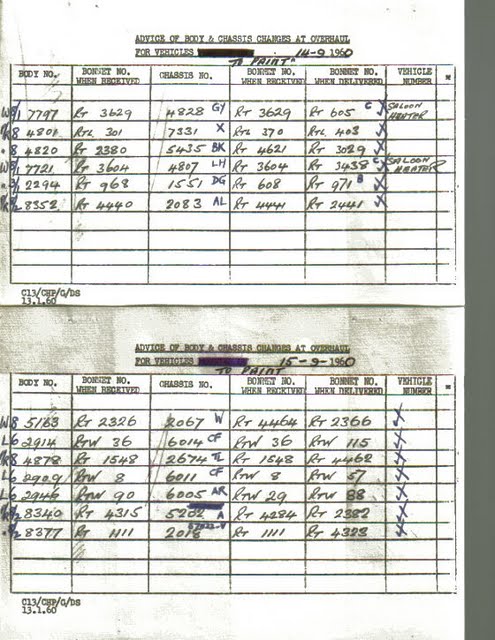 ADVICE OF BODY & CHASSIS CHANGES AT OVERHAUL
FOR VEHICLES 14-9-1960
"TO PAINT"
BODY NO. BONNET NO. WHEN RECEIVED CHASSIS NO. BONNET NO. WHEN RECEIVED BONNET NO. WHEN DELIVERED VEHICLE NUMBER *
7797 RT 3629 4828 GY RT 3629 RT 605 C X SALOON HEATER
R8 4801 RTL 301 7331 X RTL 370 RTL 403 X
" 8 4820 RT 2380 5435 BK RT 4621 RT 3029 X
7721 RT 3604 4807 LH RT 3604 RT 3438 C X SALOON HEATER
2294 RT 968 1551 DG RT 608 RT 971 B X
8352 RT 4440 2083 AL RT 4441 RT 2441 X
C13/CHP/G/DS
13.1.60
ADVICE OF BODY & CHASSIS CHANGES AT OVERHAUL
FOR VEHICLES 15-9-1960
TO PAINT
BODY NO. BONNET NO. WHEN RECEIVED CHASSIS NO. BONNET NO. WHEN RECEIVED BONNET NO. WHEN DELIVERED VEHICLE NUMBER *
W8 5163 RT 2326 2067 W RT 4464 RT 2366 X
L6 2914 RTW 36 6014 CF RTW 36 RTW 115 X
R8 4878 RT 1548 2674 TL RT 1548 RT 4462 X
L6 2909 RTW 8 6011 CF RTW 8 RTW 57 X
L6 2946 RTW 90 6005 AR RTW 29 RTW 88 X
8340 RT 4315 5202 A RT 4284 RT 2382 X
8377 RT 1111 2018 RT 1111 RT 4323 X
C13/CHP/G/DS
13.1.60